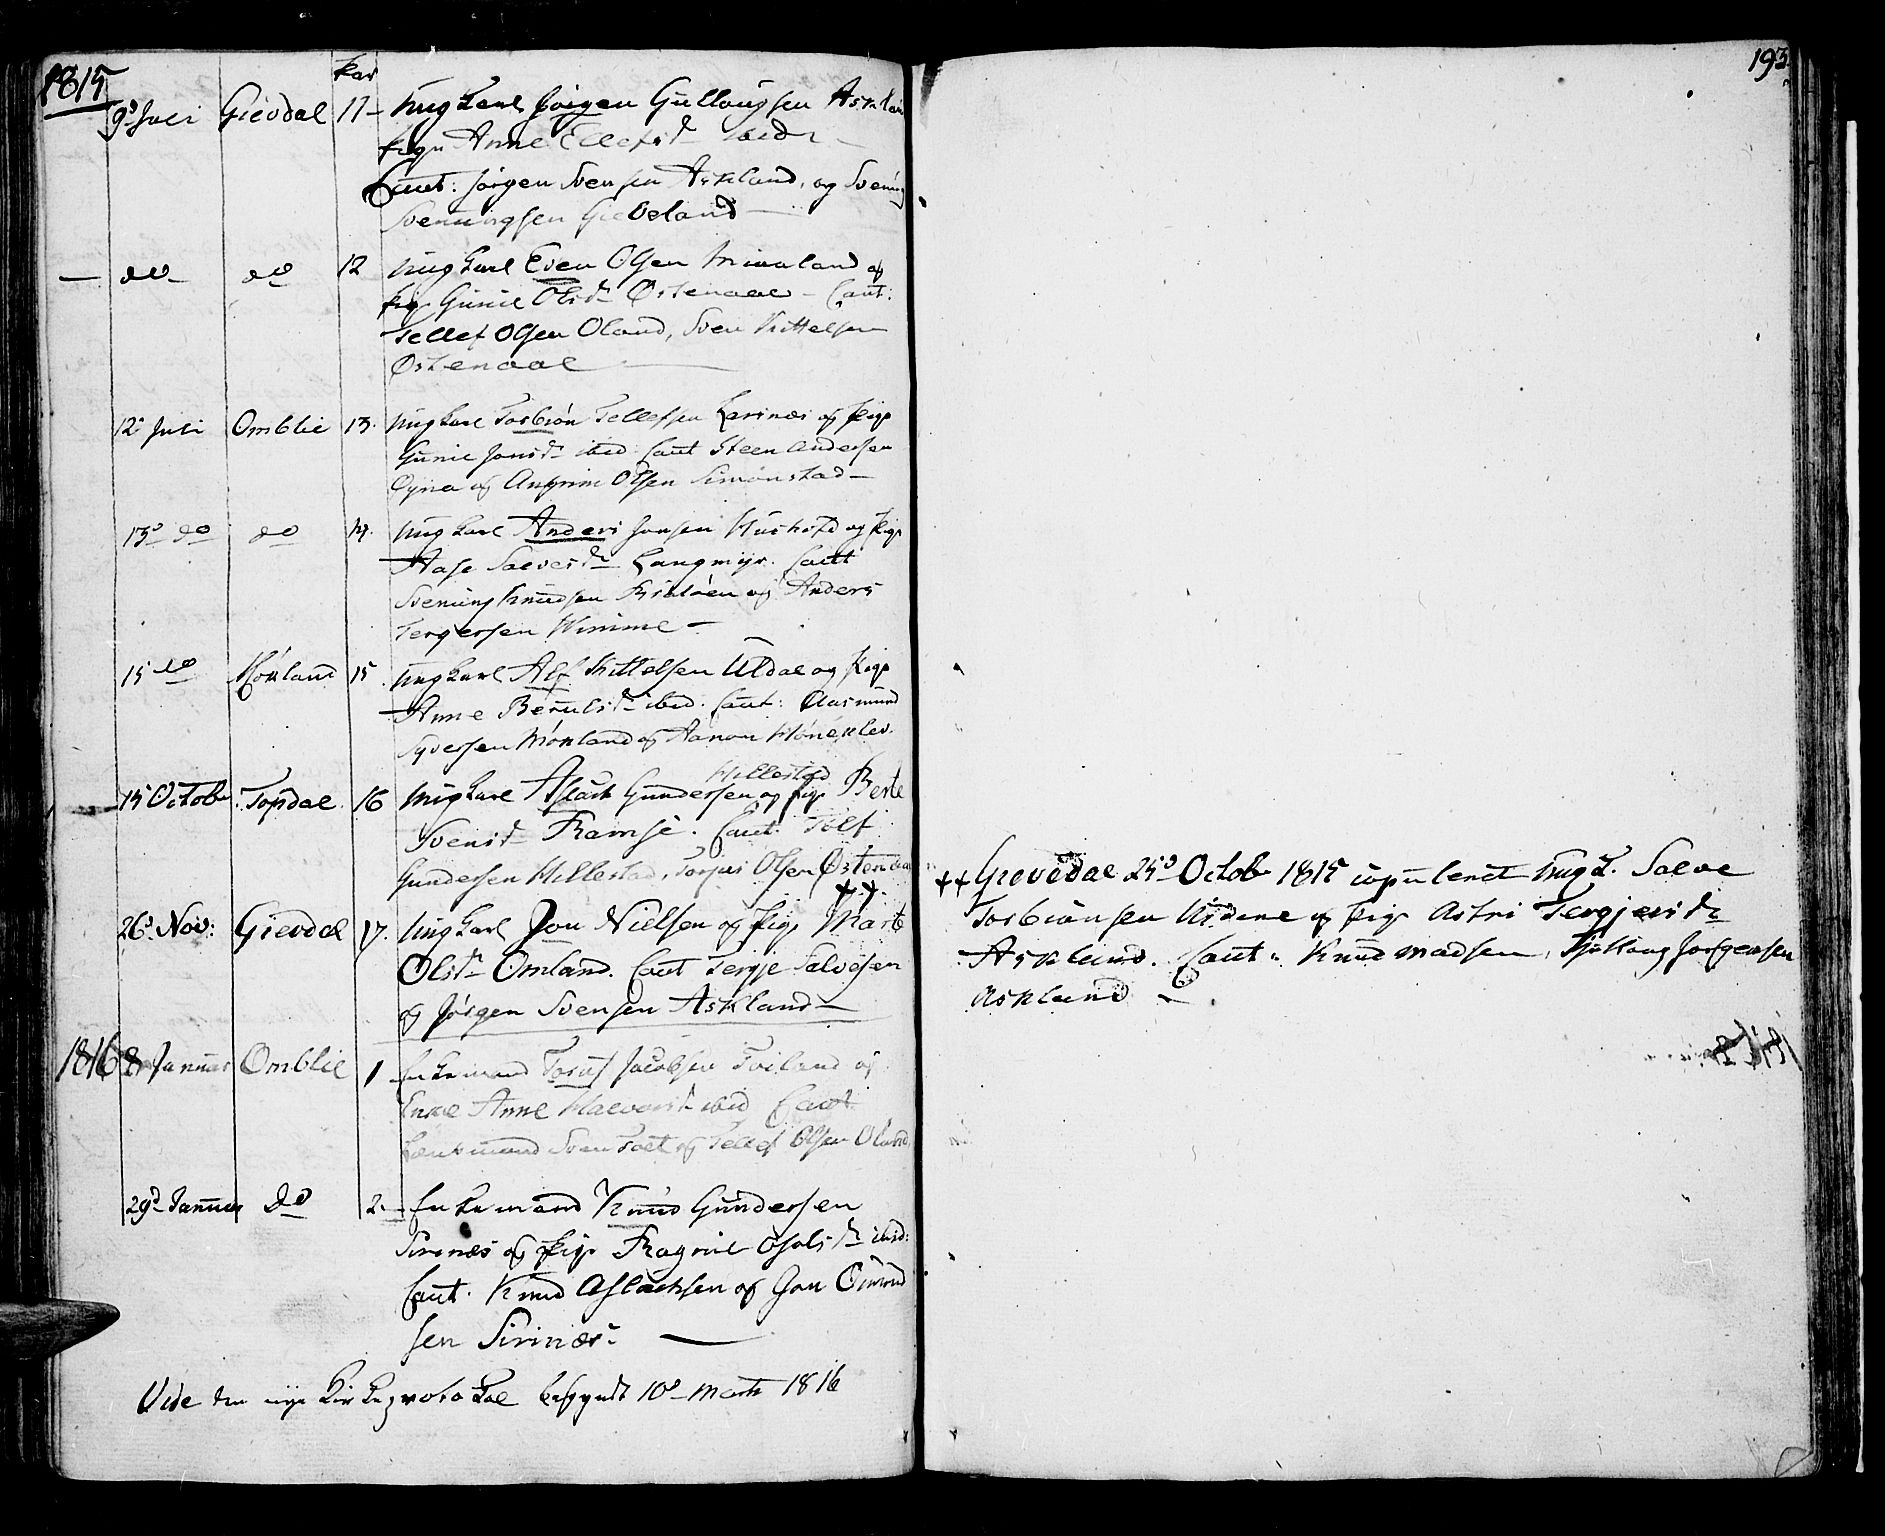 1815
par
9d Juli Gievdal 11 - Ung Karl Jørgen Gullougsen Askland
pige Anne Ellefsd ibid
Caut: Jørgen Svensen Askland, og Svening
Sveningsen Gieveland
do do 12 Ung Karl Even Olsen og
pige Gunil Olsd Østenaae - Caut:
Tellef Olsen Oland, Sven Kittelsen
Østenaae
12 Juli Omblie 13. Ung Karl Torbiøn Tellefsen og pige
Gunil Jonsd ibid Caut Steen Andersen
og Olsen Simonstad -
13d do do 14. Ung Karl Anders Jonsen og pige
Aase Salvesd Langmyr. Caut
Svenung Knudsen og Anders
Tergersen Wimme -
15 do Mökland 15. Ung Karl Alf Kittelsen Uldal og pige
Anne ibid. Caut: Aasmund
Syversen Mökland og Aanon
Hillestad
15 Octobr Topdal 16 Ung Karl Aslack Gundersen og pige Berte
Svensd Ramse. Caut.
Gundersen Hillestad, Torjus Olsen Østenaa
++.
26d Nov: Gievdal 17. Ung Karl Jon Nielsen og pige Marte
Olsd Omland. Caut Tergje Salvesen
og Jørgen Svensen Askland -
1816 8 Januar Omblie 1 Enkemand Jacobsen og
Enke Anne Halvorsd ibid Caut
Lensmand Sven og Tellef Olsen Oland
29d Januar do 2. - Enkemand Knud Gundersen
Sirinæs og pige Ragnil ibid:
Caut. Knud Aslacksen og Jon
sen Sirinæs.
Vide den nye Kirkeprotokol begyndt 10d Marti 1816
193
++ Gievedal 25d Octobr 1815 copuleret Ung K. Salve
Torbiønsen og pige Astri Tergjersd
Askland. Caut: Knud Madsen, Jørgensen
Askland -